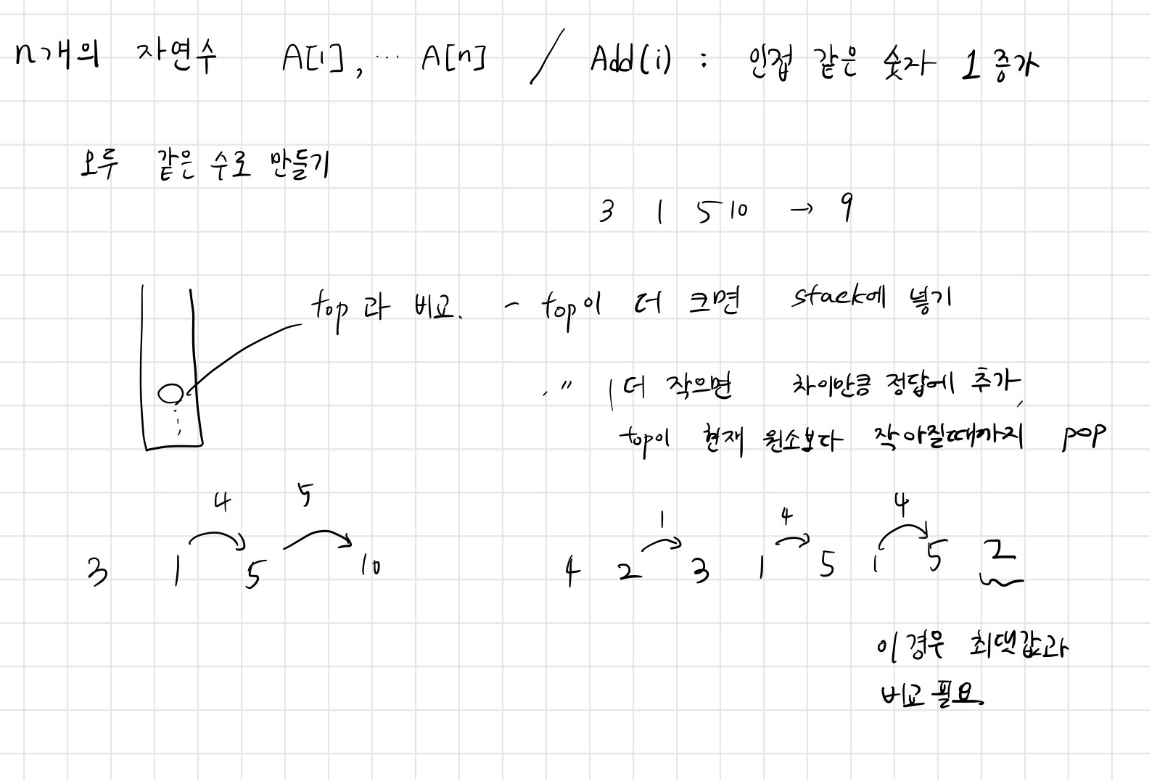 n개의 자연수 A[1], … A[n] / Add(i) : 인접 같은 숫자 1 증가
모두 같은 수로 만들기
3 1 5 10 → 9
top과 비교. - top이 더 크면 stack에 넣기
〃 더 작으면 차이만큼 정답에 추가,
top이 현재 원소보다 작아질때까지 pop
4 5 1 4 4
3 1 5 10 4 2 3 1 5 1 5 2
이 경우 최댓값과
비교 필요.